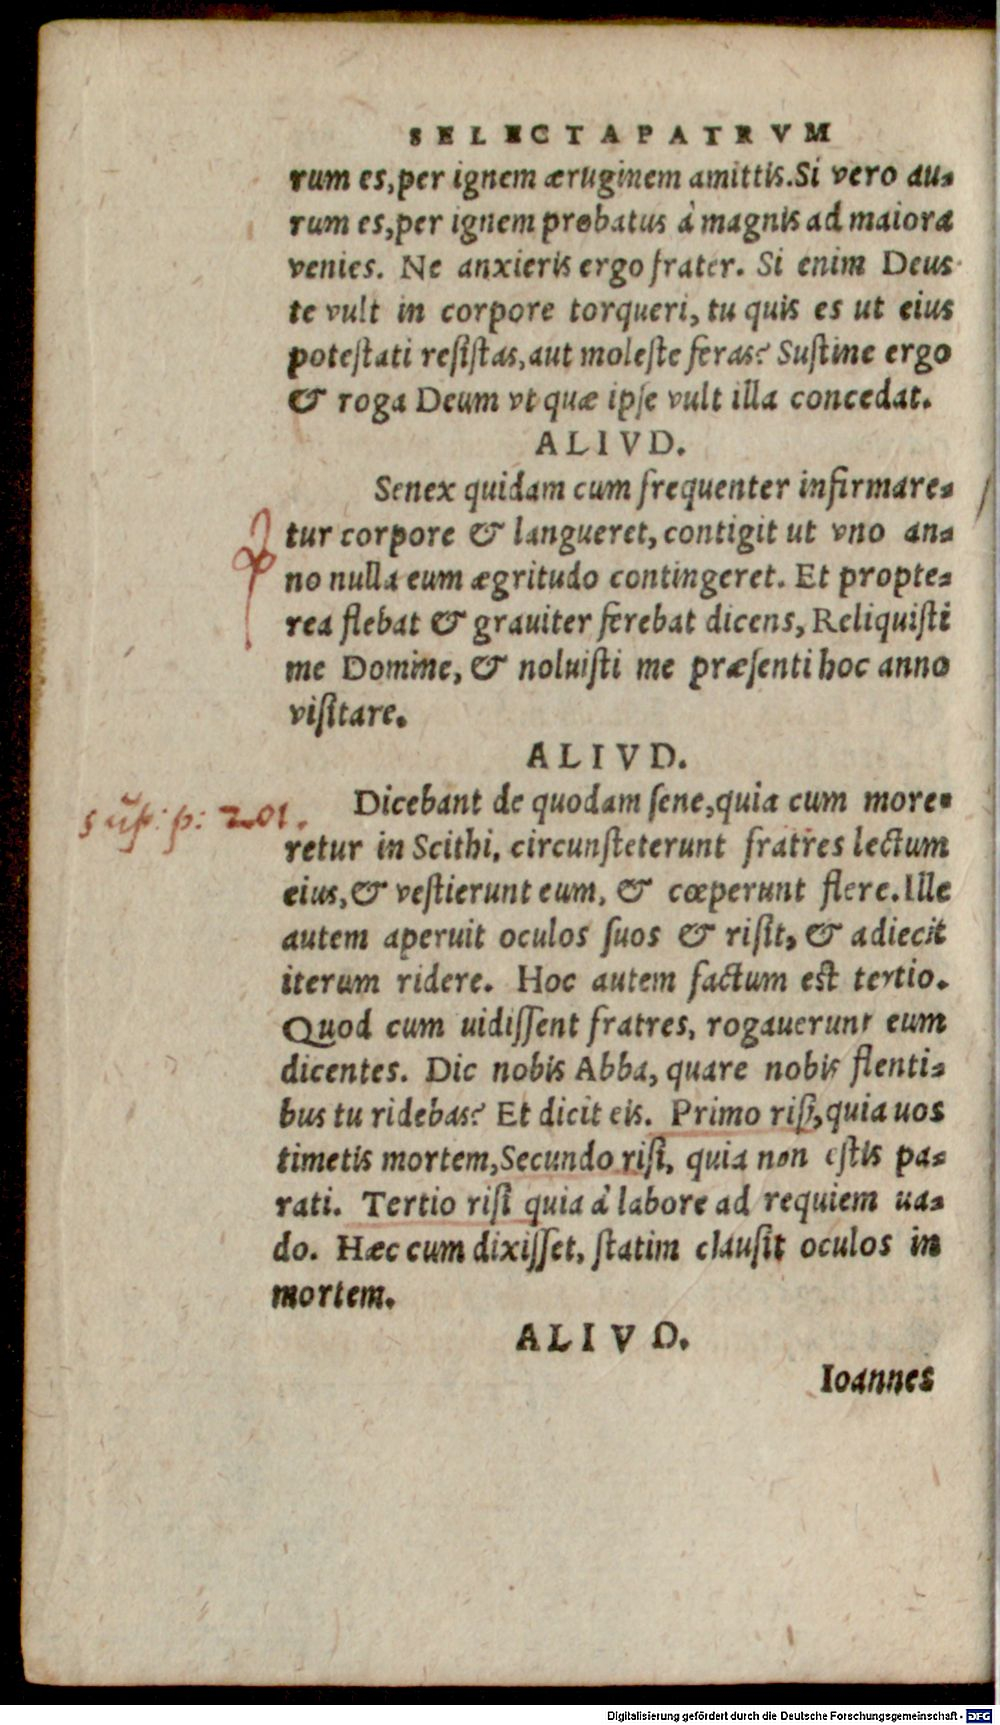 SELECTA PATRVM
rum es, per ignem æruginem amittis. Si vero au-
rum es, per ignem probatus à magnis ad maiora
venies. Ne anxieris ergo frater. Si enim Deus
te vult in corpore torqueri, tu quis es ut eius
potestati resistas, aut moleste feras? Sustine ergo
& roga Deum vt quæ ipse vult illa concedat.
ALIVD.
Senex quidam cum frequenter infirmare-
tur corpore & langueret, contigit ut vno an-
no nulla eum ægritudo contingeret. Et propte-
rea flebat & grauiter ferebat dicens, Reliquisti
me Domine, & noluisti me præsenti hoc anno
visitare.
ALIVD.
sup: p: 201.
Dicebant de quodam sene, quia cum more-
retur in Scithi, circunsteterunt fratres lectum
eius, & vestierunt eum, & cœperunt flere. Ille
autem aperuit oculos suos & risit, & adiecit
iterum ridere. Hoc autem factum est tertio.
Quod cum uidissent fratres, rogauerunt eum
dicentes. Dic nobis Abba, quare nobis flenti-
bus tu ridebas? Et dicit eis. Primo risi, quia uos
timetis mortem, Secundo risi, quia non estis pa-
rati. Tertio risi quia à labore ad requiem ua-
do. Hæc cum dixisset, statim clausit oculos in
mortem.
ALIVD.
Ioannes
Digitalisierung gefördert durch die Deutsche Forschungsgemeinschaft - DFG